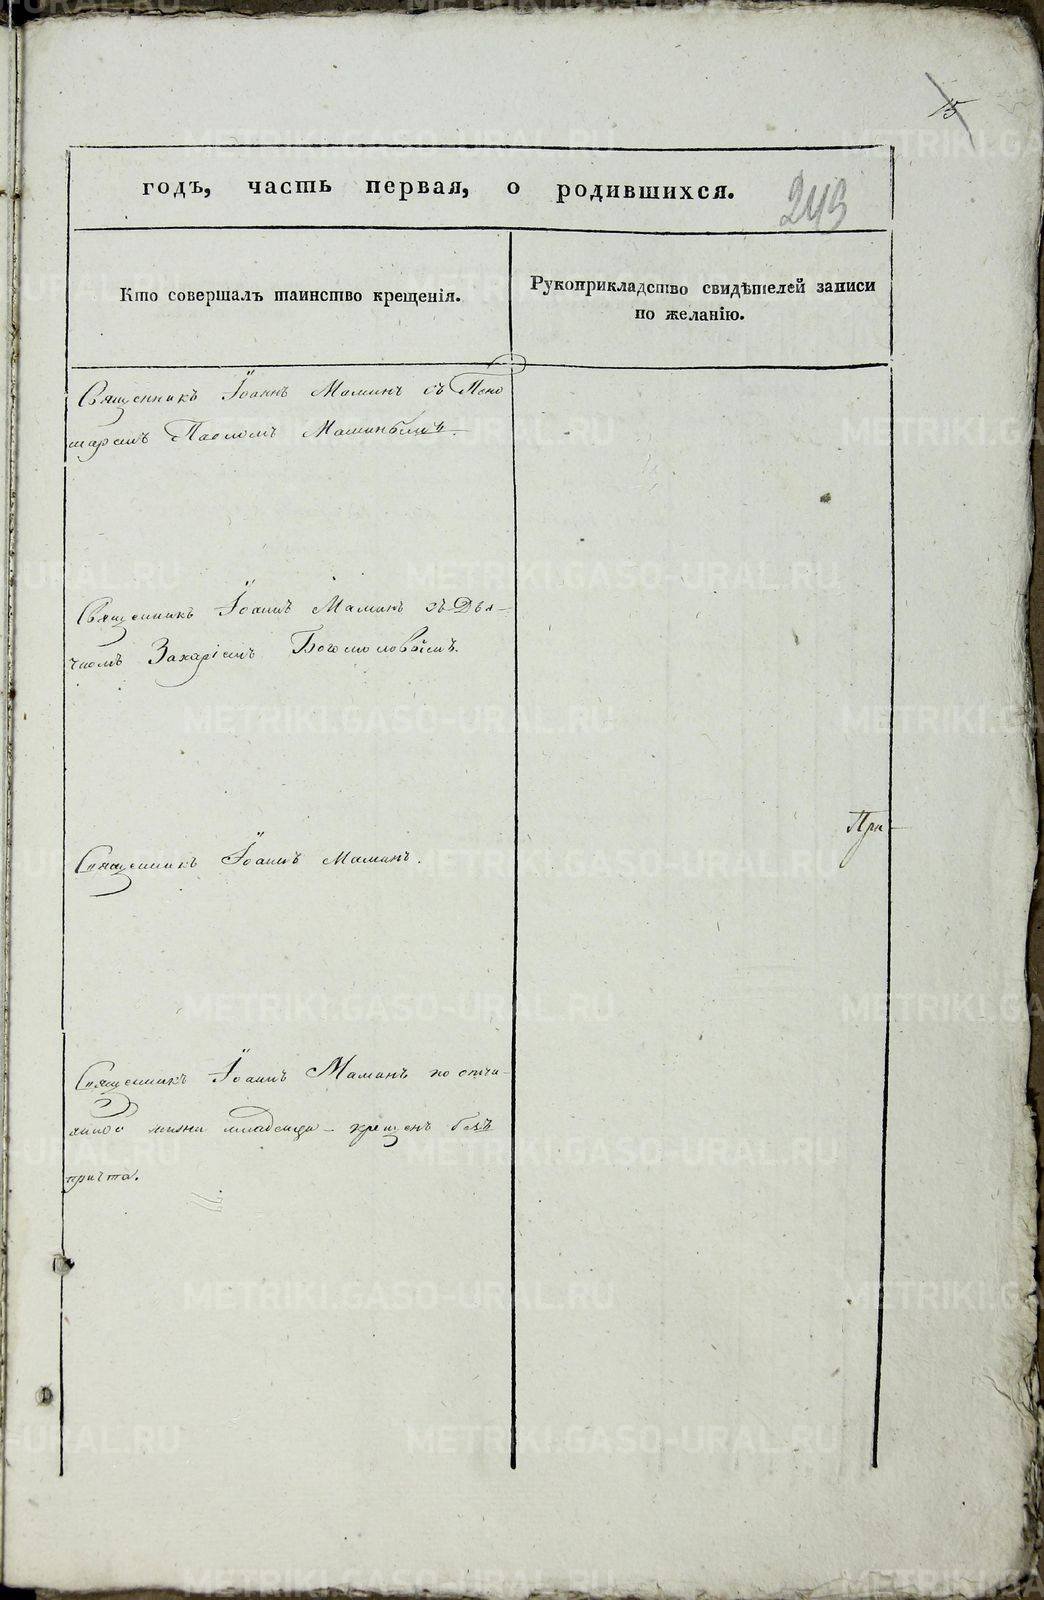 15
годъ, часть первая, о родившихся.
243
Кто совершалъ таинство крещенія.
Рукоприкладство свидѣтелей записи
по желанію.
Священникъ Іоаннъ Маминъ съ Поно
маремъ Павломъ Маминымъ.
Священникъ Іоаннъ Маминъ съ Дья-
чкомъ Захаріемъ Богословымъ.
При-
Священникъ Іоаннъ Маминъ.
Священникъ Іоаннъ Маминъ по отча-
жизни младенца крещенъ безъ
причта.
METRIKI.GASO-URAL.RU